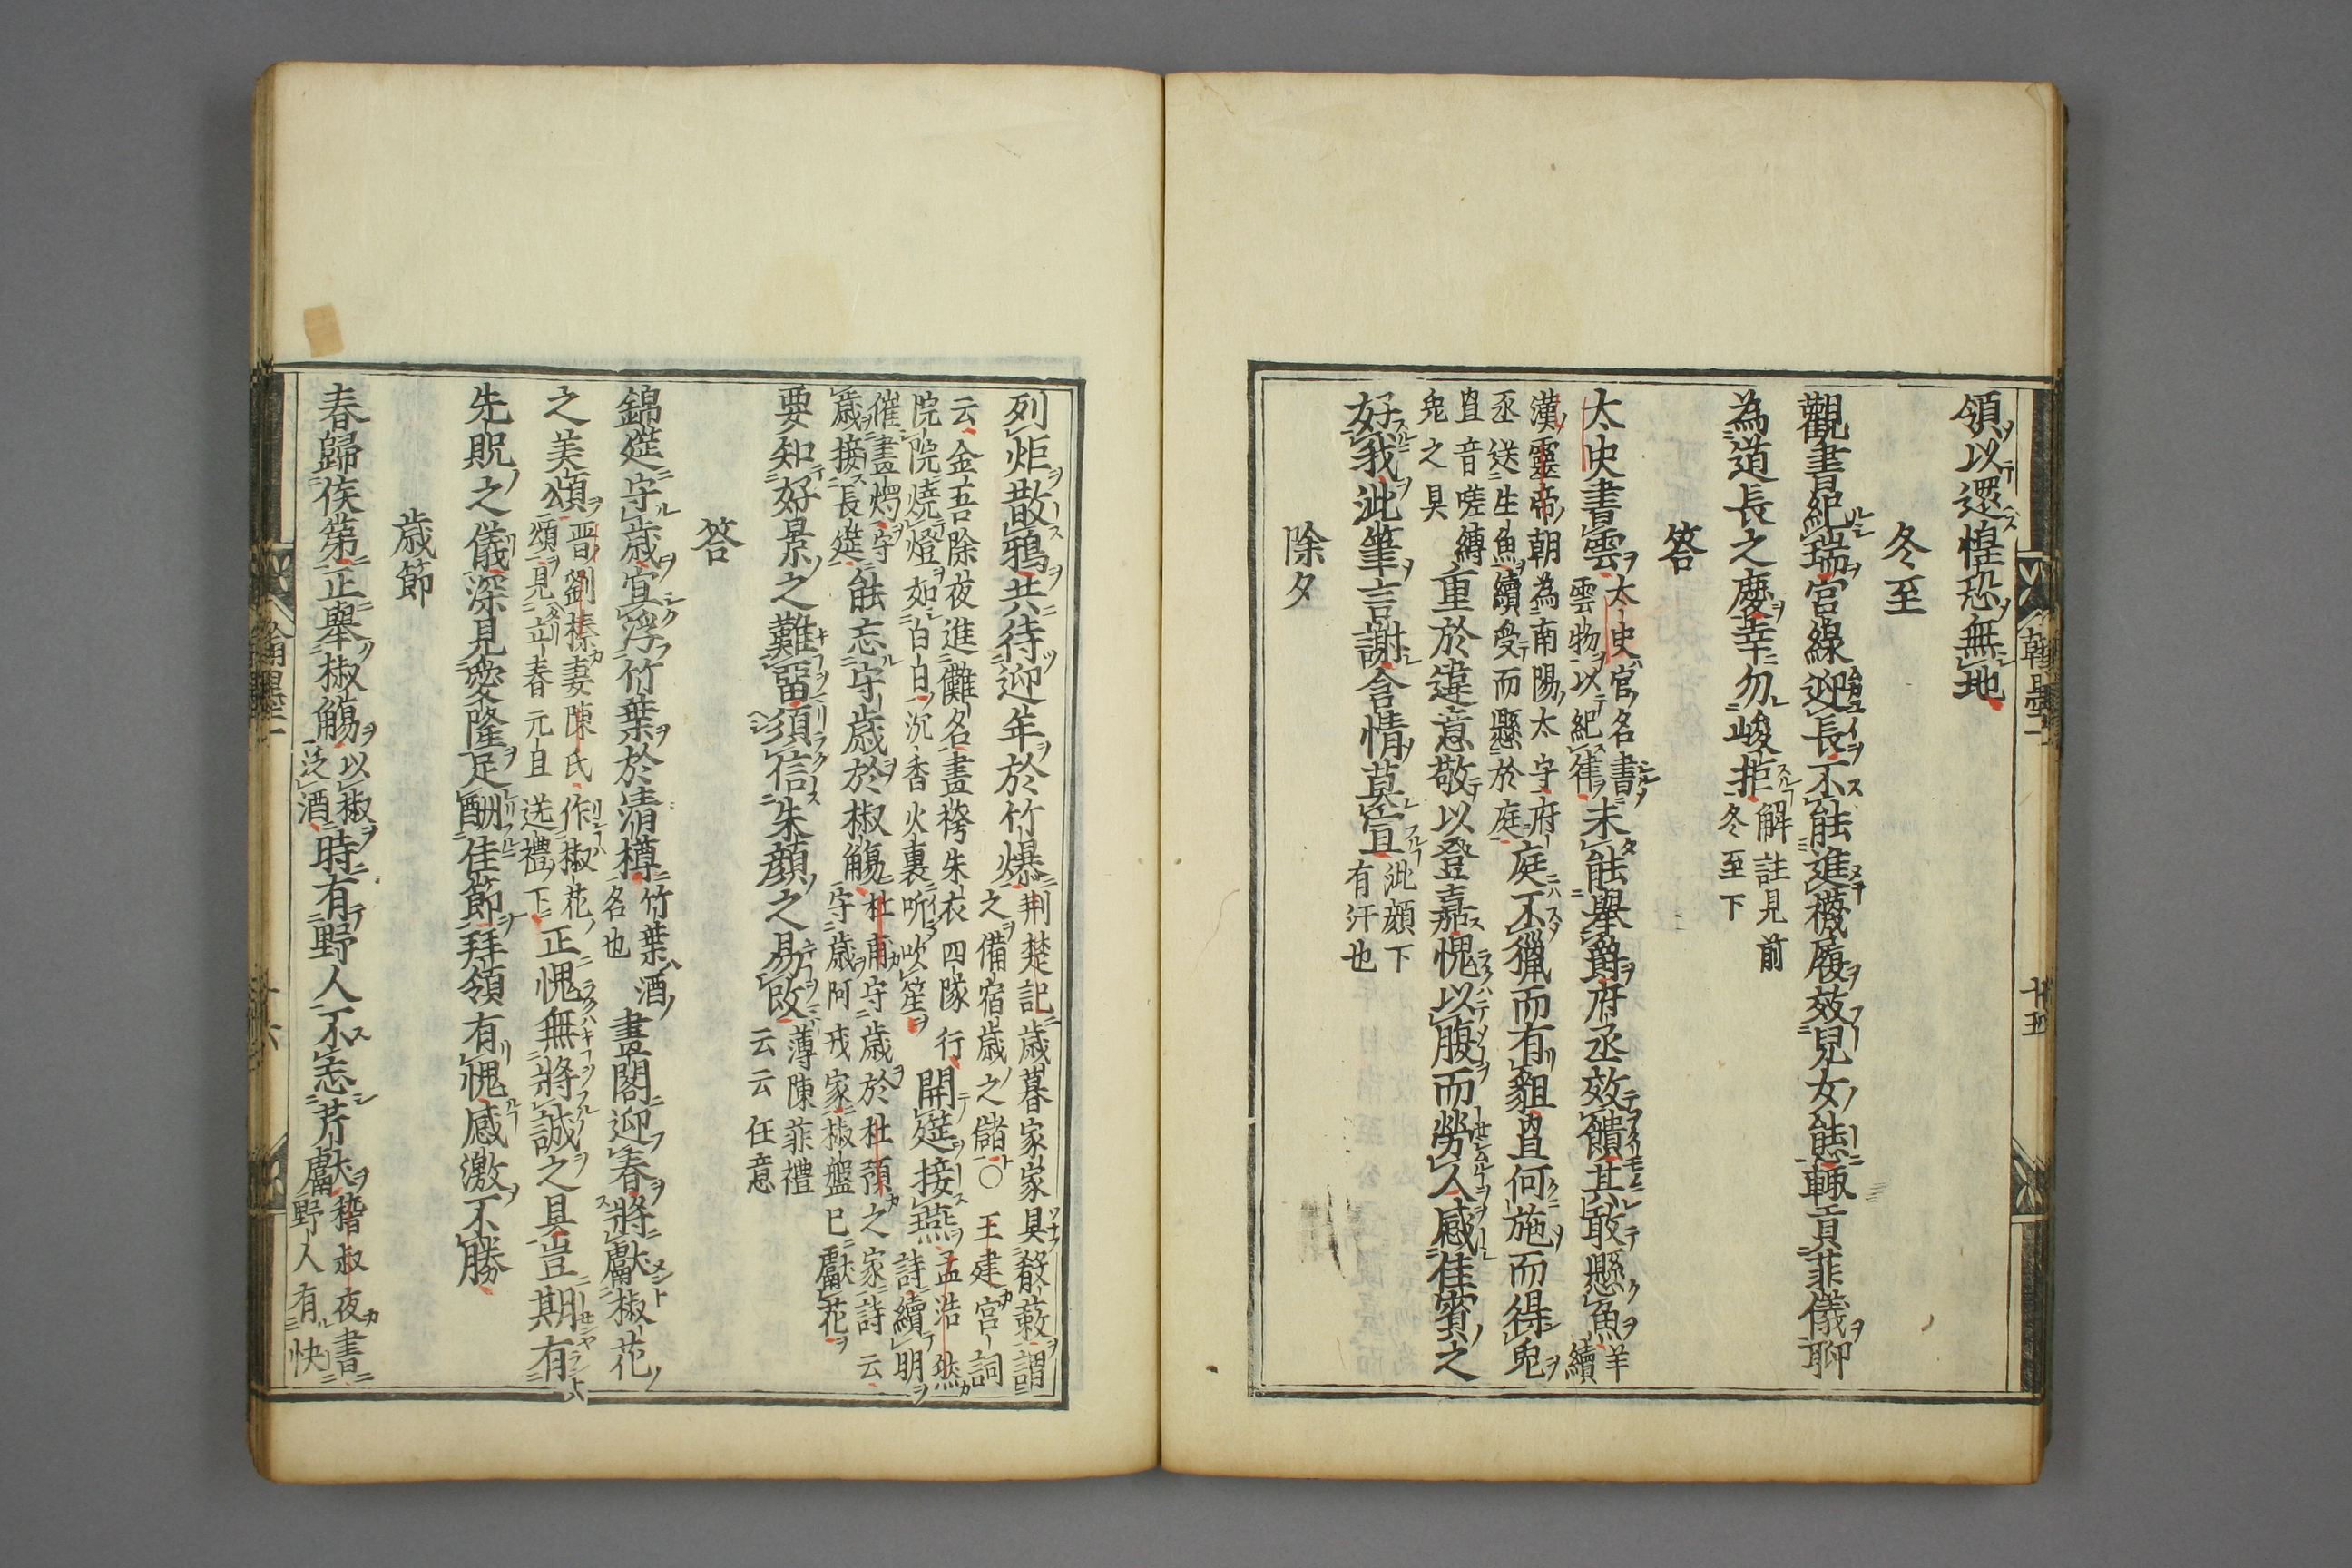 領以還惶恐無地
冬至
觀書紀瑞宮線迎長不能進襪履效兒女態輙貢菲儀聊
為道長之慶幸勿峻拒解註見前
冬至下
答
太史書雲太史官名書
雲物以紀候未能舉爵府丞效饋其敢懸魚羊
續
漢靈帝朝為南陽太守府
丞送生魚續受而懸於庭庭不獵而有貆罝何施而得兔
罝音嗟縛
兔之具重於違意敬以登嘉愧以腹而勞人感佳賓之
好我泚筆言謝含情莫宣泚顔下
有汗也
除夕
列炬散鴉共待迎年於竹爆荆楚記歲暮家家具餚蔌謂
之備宿歲之儲〇王建宮詞
云金吾除夜進儺名畫袴朱衣四隊行
院院燒燈如白日沉香火裏听吹笙開筵接燕孟浩然
詩續明
催畫燭守
歲接長筵能忘守歲於椒觴杜甫守歲於杜預之家詩云
守歲阿戎家椒盤已獻花
要知好景之難畱須信朱顔之易改薄陳菲禮
云云任意
答
錦筵守歲寘浮竹葉於清樽竹葉酒
名也畫閣迎春將獻椒花
之美頌晋劉榛妻陳氏作椒花
頌見立春元旦送禮下正愧無將誠之具豈期有
先貺之儀深見愛隆足酬佳節拜領有愧感激不勝
歲節
春歸俟第正舉椒觴以椒
泛酒時有野人不忘芹獻嵇叔夜書
野人有快
翰墨一
十五
翰墨一
十六